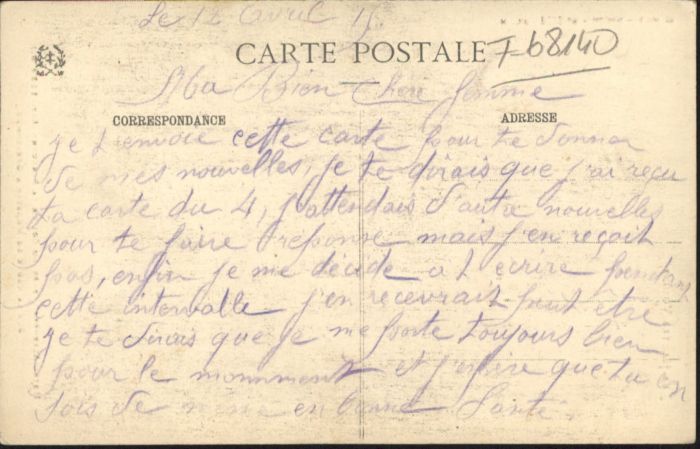 Le 12 Avril 15
CARTE POSTALE
F 68140
Ma Bien Chere femme
CORRESPONDANCE
ADRESSE
je t envoie cette carte pour te donner
de mes nouvelles, je te dirais que j'ai reçu
ta carte du 4, j'attendais d'autre nouvelles
pour te faire reponse mais j'en reçoit
pas, enfin je me décide a t écrire pendant
cette intervalle j'en recevrait peut être
je te dirais que je me porte toujours bien
pour le monument et j'espire que tu en
sois de même en bonne Santé.